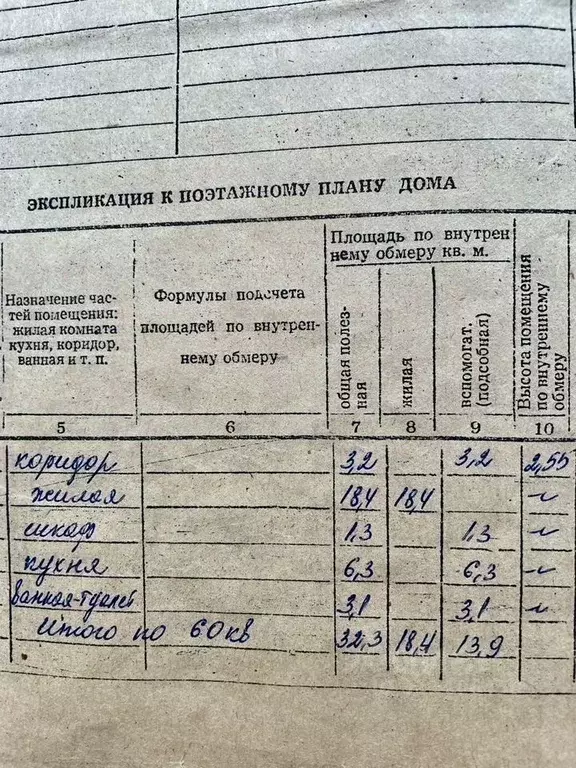 ЭКСПЛИКАЦИЯ К ПОЭТАЖНОМУ ПЛАНУ ДОМА
Назначение час-
тей помещения:
жилая комната
кухня, коридор,
ванная и т. п.
Формулы подсчета
площадей по внутрен-
нему обмеру
Площадь по внутрен
нему обмеру кв. м.
общая полез-
ная
жилая
вспомогат.
(подсобная)
Высота помещения
по внутреннему
обмеру
5 6 7 8 9 10
коридор 3,2 3,2 2,55
жилая 18,4 18,4 〃
шкаф 1,3 1,3 〃
кухня 6,3 6,3 〃
ванная-туалет 3,1 3,1 〃
Итого по 60кв 32,3 18,4 13,9